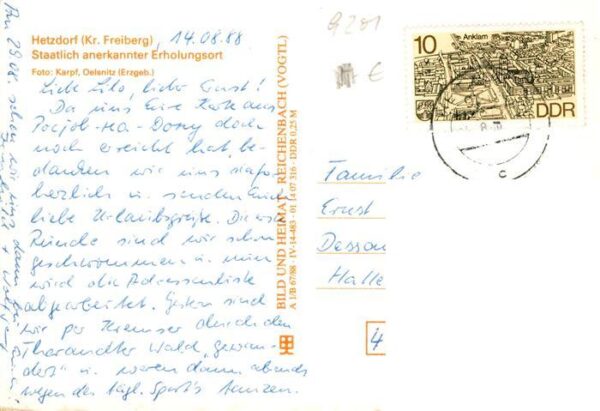 Hetzdorf (Kr. Freiberg), 14.08.88
Staatlich anerkannter Erholungsort
Foto: Karpf, Oelsnitz (Erzgeb.)
Liebe Lilo, lieber Ernst!
Da uns Eure Karte aus
doch
noch erreicht hat, be-
danken wir uns dafür
herzlich u. senden Euch
liebe Urlaubsgrüße. Die
Runde sind wir schon
geschwommen u. nun
wird die Adressenliste
abgearbeitet. Gestern sind
wir per Kremser durch den
Tharandter Wald "gewan-
dert" u. waren dann abends
wegen des tägl. Sports tanzen.
Am 29.08. sehen wir uns dann
BILD UND HEIMAT · REICHENBACH (VOGTL)
A 1/B 67/88 · IV-14-483 · 01 14 07 316 · DDR 0,25 M
€
10
Anklam
DDR
Familie
Ernst
Dessau
Halle
4